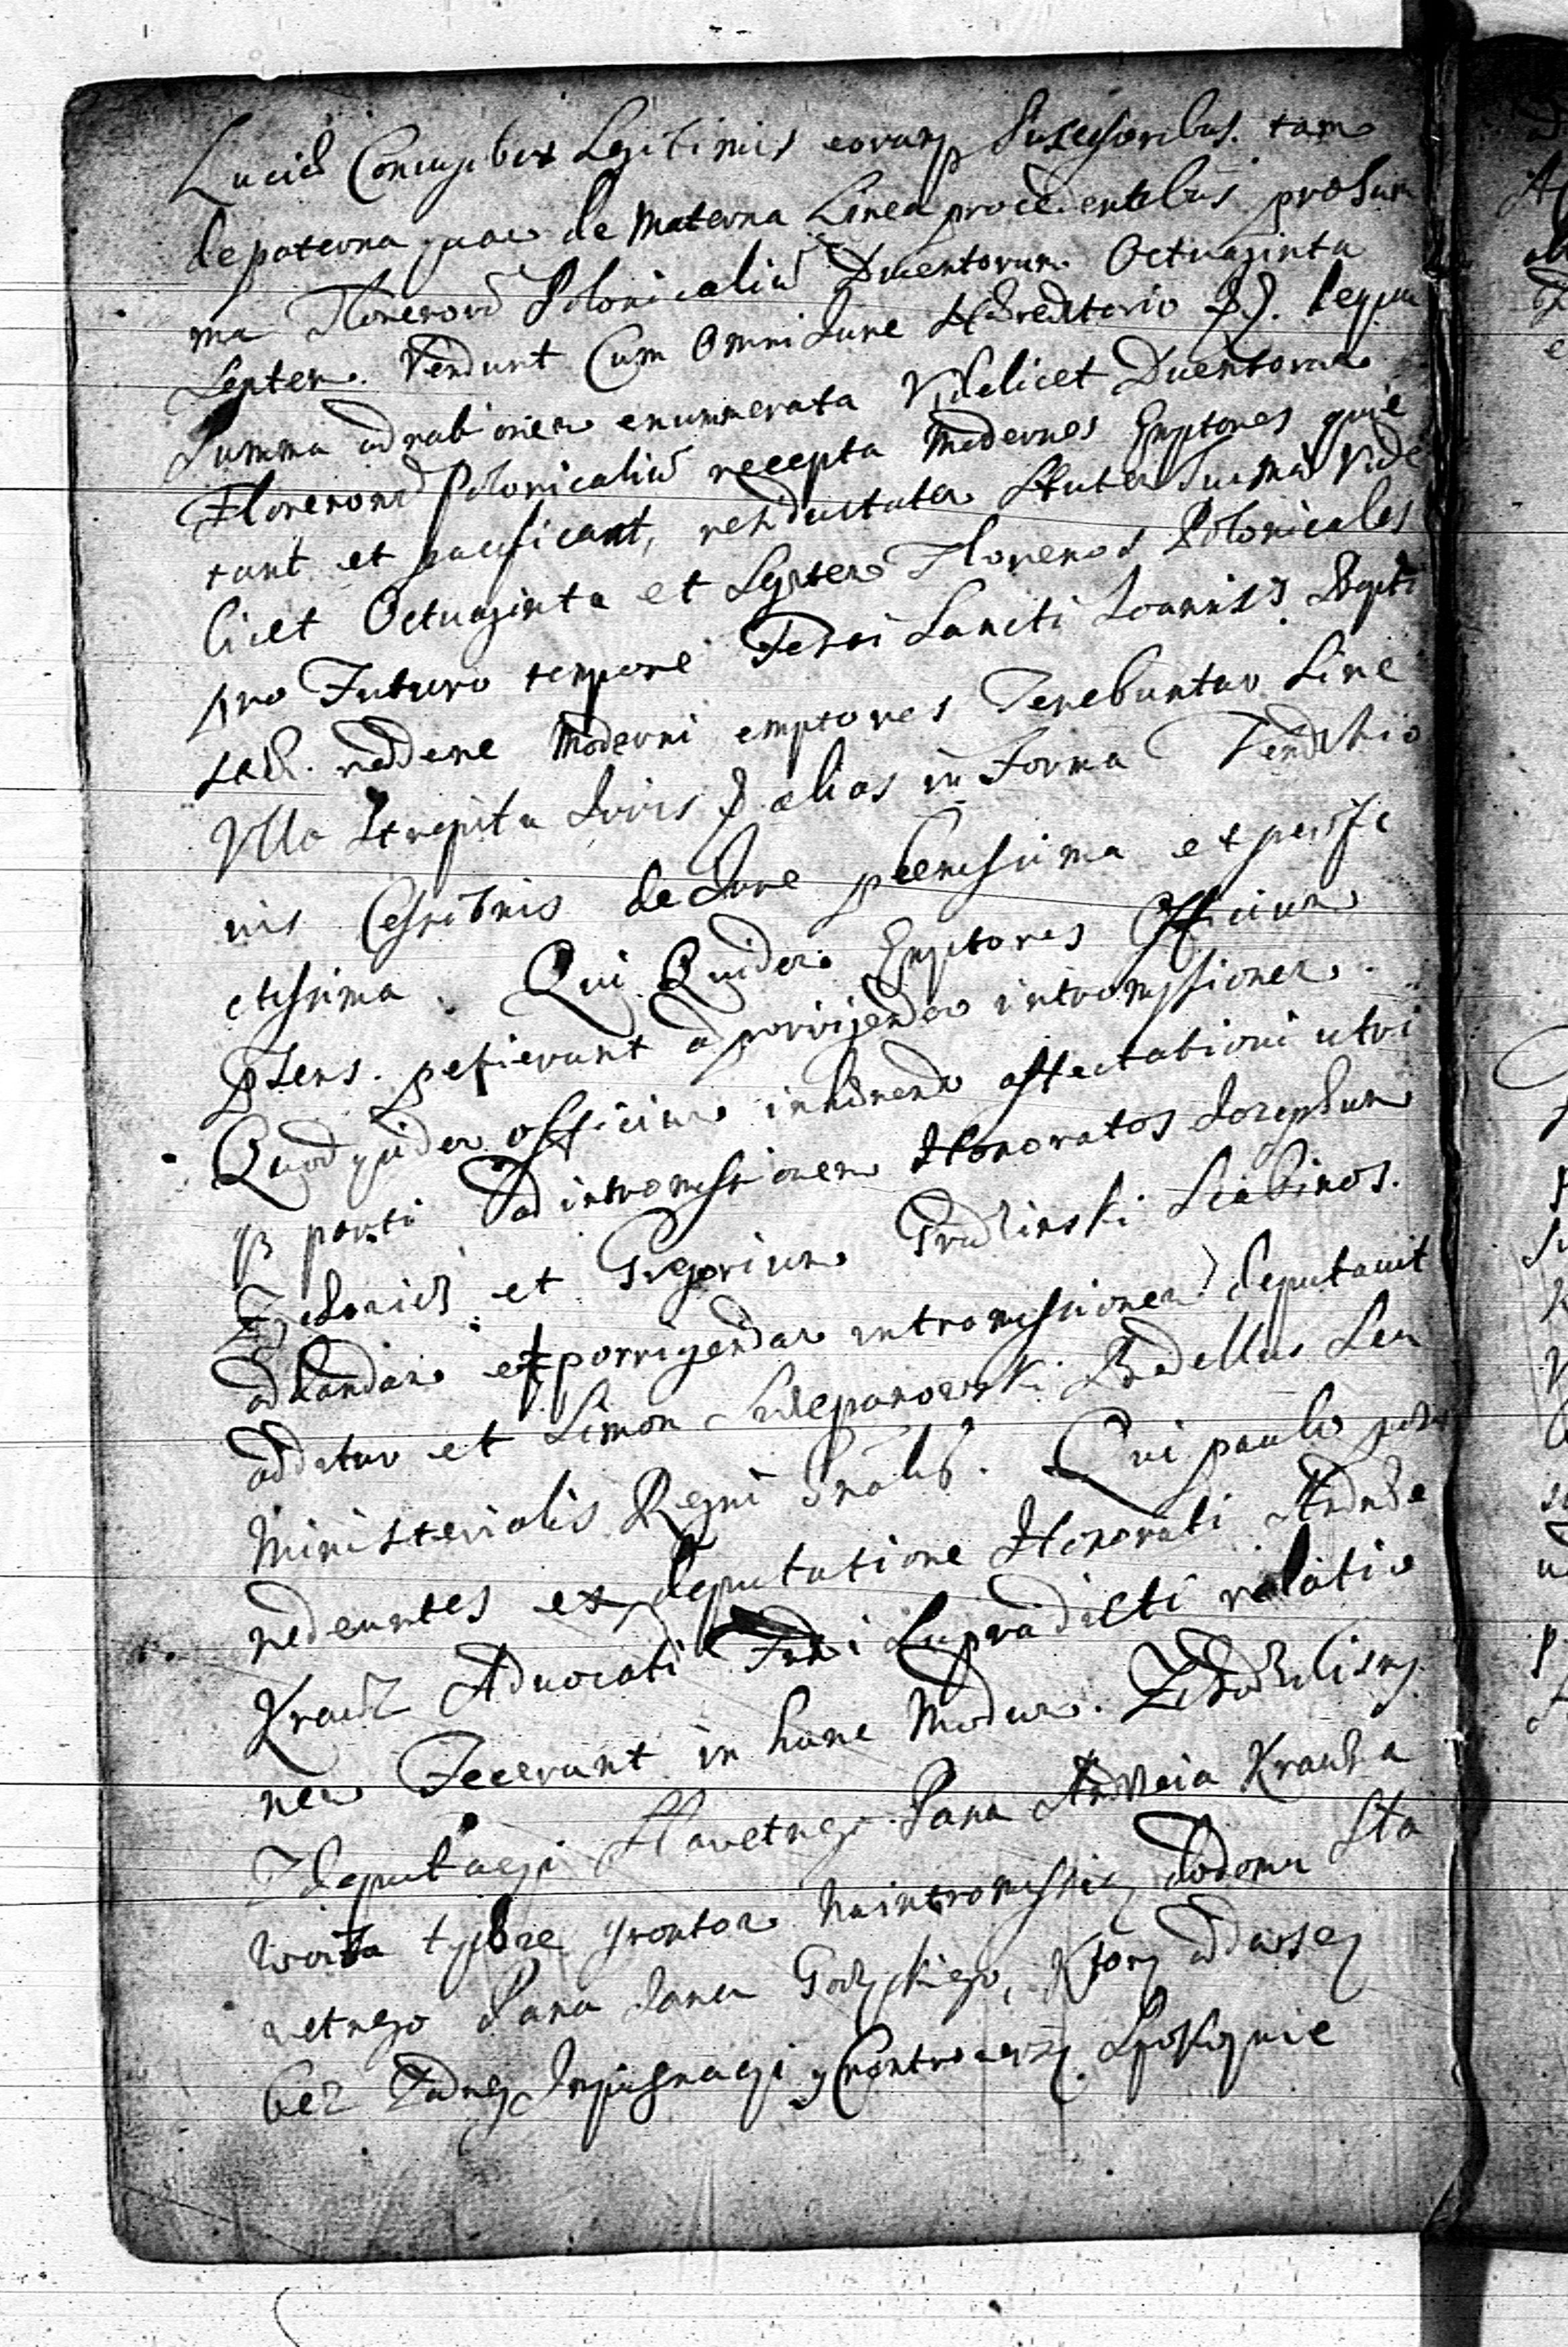 Coniugibus Legitimis eorumq Successoribus. tam
de paterna quae de Materna Linea procedentibus pro Sum
ma Florenorū Polonicaliū Ducentorum Octuaginta
Septem. Vendunt Cum Omni Iure Haereditario
Summa ad rationem enummerata Videlicet Ducentorum
Florenorū Polonicaliū recepta Modernos Emptores quie
tant et pacificant, Summa Vide
licet Octuaginta et Septem Florenos Polonicales
pro Futuro tempore Festi Sancti Ioannis Bapti
reddere Moderni emptores Tenebuntur Sine
Vllo Strepitu Iuris alias in Forma Venditio
nis Cessionis de Iure plenissima et perfe
ctissima. Qui Quidem Emptores Officium
psens. petierunt ad porrigendam intromissionem.
Quod quidem officium inhaerendo affectationi utri
qз parti ad intromissionem Honoratos Iosephum
et Gregorium Scabinos.
ad dandam et porrigendam intromissionem deputauit
additur et Simon Szczepanowski Bedellus Seu
Ministerialis Regni Gnalis. Qui paulo post
redeuntes ex deputatione Honorati Andreae
Krauz Aduocati Supradicti relatio
nem Fecerunt in hunc Modum.
Z deputacyi Sławetnego Pana Andrzeia Krauza
Woita tychze gruntow na intromissią do domu Sła
wetnego Pana Iana Ktory
bez zadney Inpugnacyi y Controwersyi Spokoynie